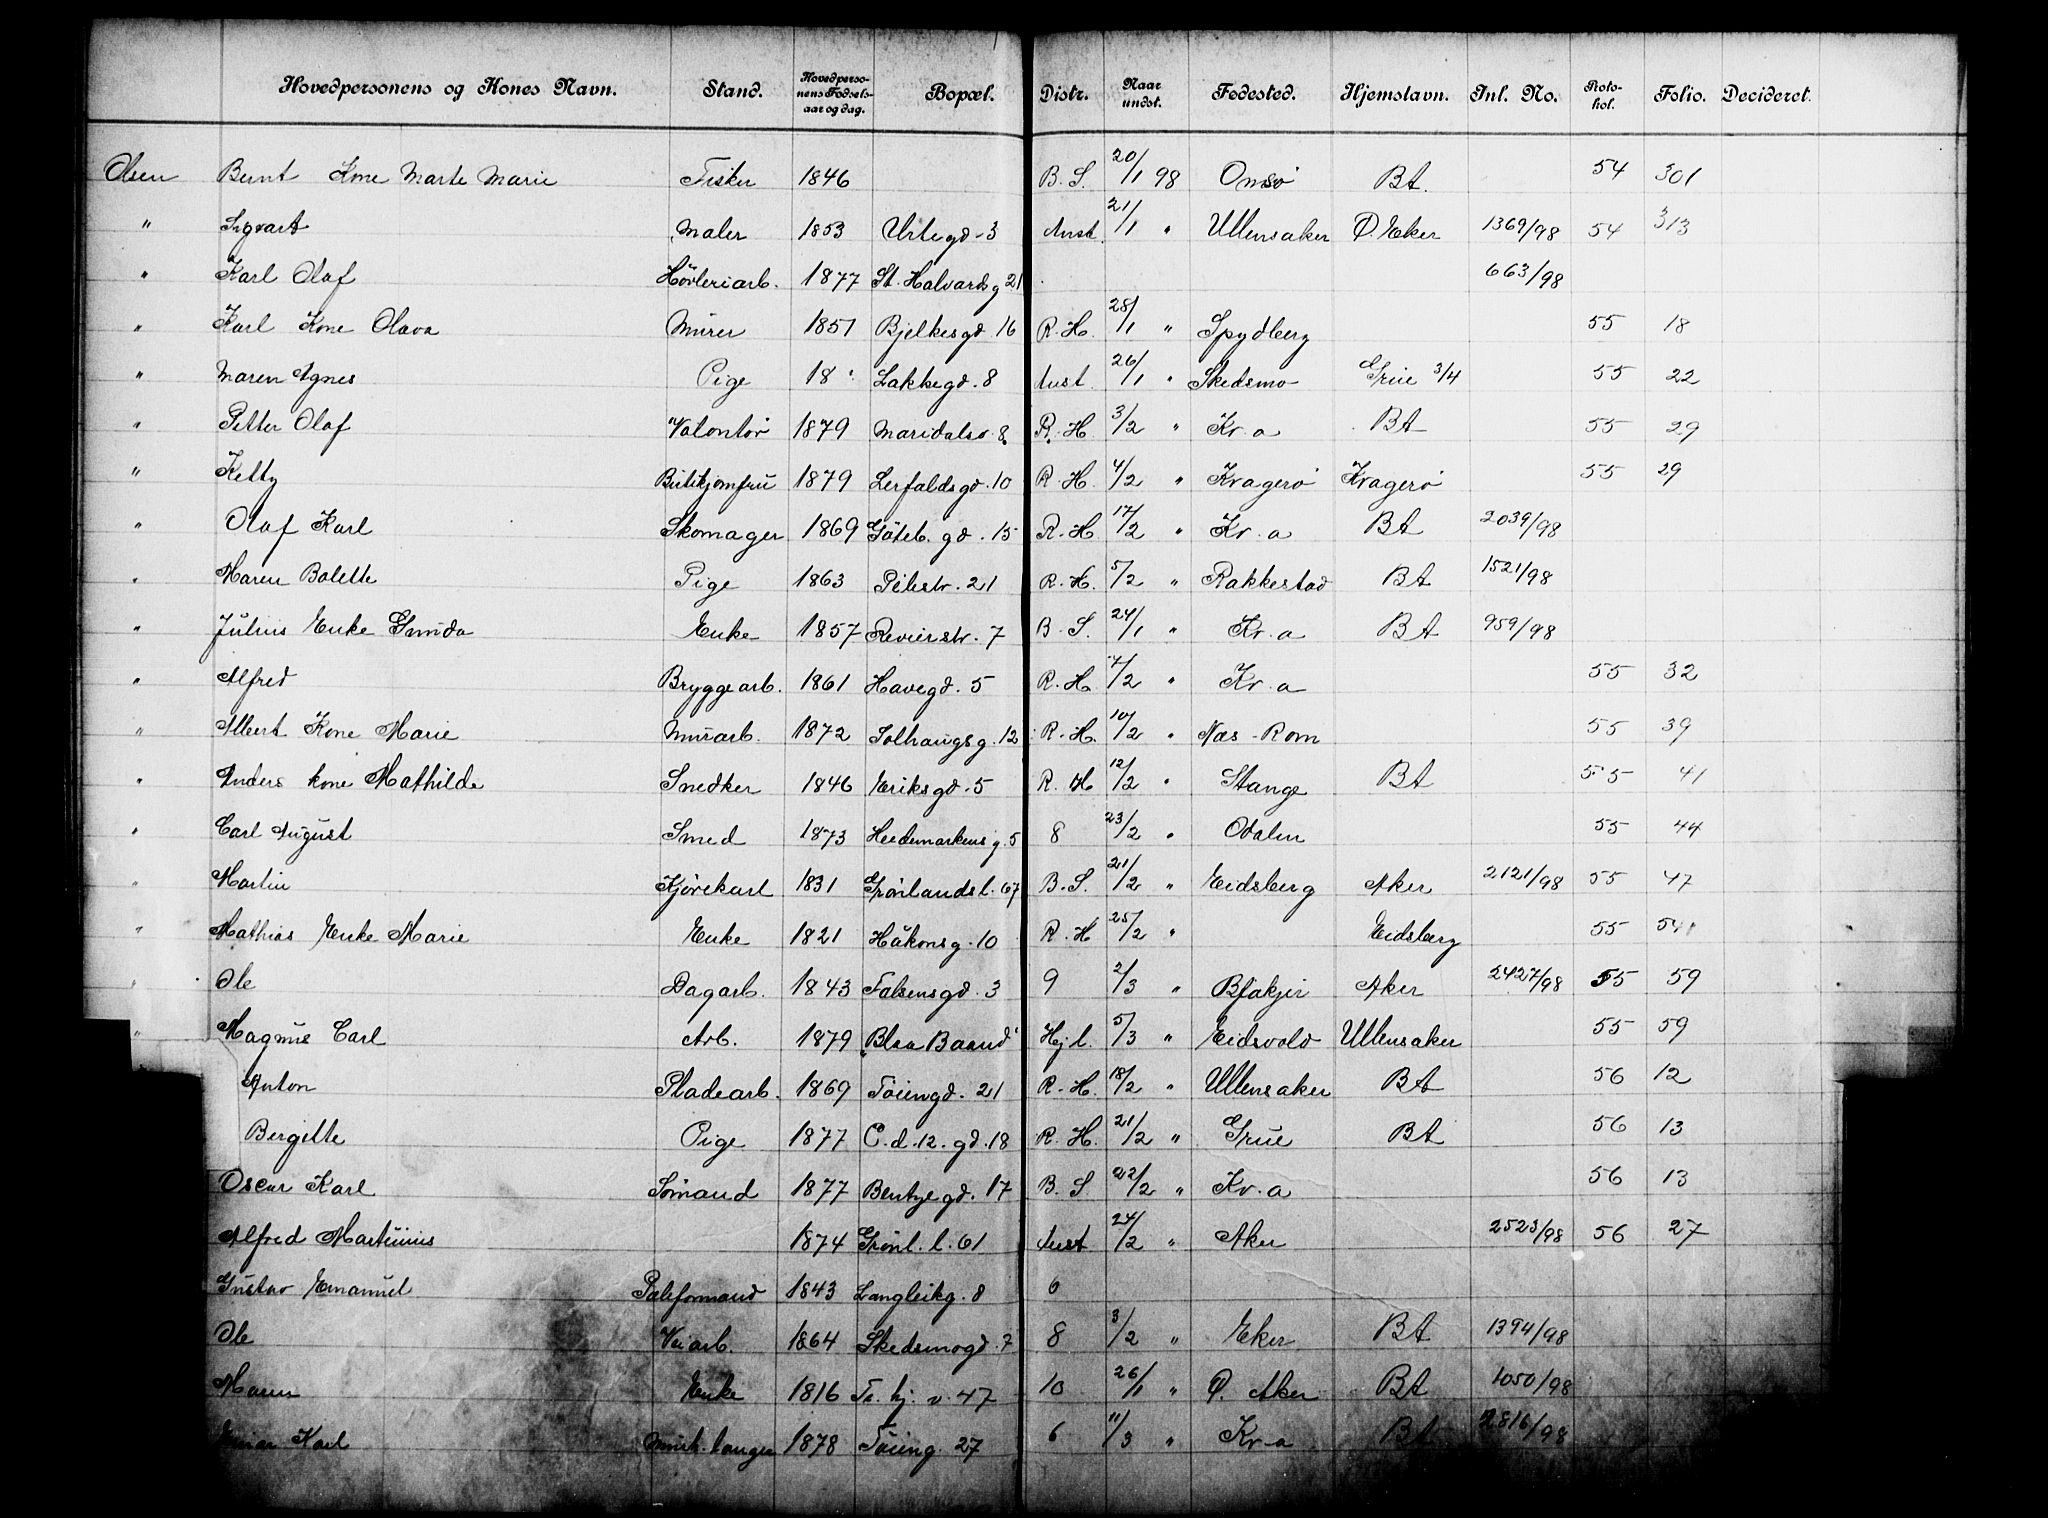 Hovedpersonens og Kones Navn. Stand. Hovedpersonens Fødselsaar og dag. Bopæl. Distr. Naar undst. Fødested. Hjemstavn. Inl. No. Protokol. Folio. Decideret.
Olsen Bernt Kone Marte Marie Fisker 1846 B. S. 20/1 98 Onsø BA. 54 301
" Sigvart Maler 1853 Urtegd. 3 Aust. 21/1 " Ullensaker Ø. Aker 1369/98 54 313
" Karl Olaf Høvleriarb. 1877 St. Halvardsg 21 663/98
" Karl Kone Olava Murer 1851 Bjelkesgd. 16 R. H. 28/1 " Spydberg 55 18
" Maren Agnes Pige 18 Lakkegd. 8 Aust. 26/1 " Skedsmo Grue 3/4 55 22
" Petter Olaf Volontør 1879 Maridalsv. 8 R. H. 3/2 " Kr.a BA 55 29
" Ketty Butikjomfru 1879 Lerfaldsgd. 10 R. H. 4/2 " Kragerø Kragerø 55 29
" Olaf Karl Skomager 1869 Göteb. gd. 15 R. H 17/2 " Kr.a BA 2039/98
" Maren Bolette Pige 1863 Pilestr. 21 R. H. 5/2 " Rakkestad BA 1521/98
" Julius Enke Gunda Enke 1857 Revierstr. 7 B. S. 24/1 " Kr.a BA 959/98
" Alfred Bryggearb. 1861 Havegd. 5 R. H. 7/2 " Kr.a 55 32
" Albert Kone Marie Murarb. 1872 Solhaugsg. 12 R. H. 10/2 " Næs Rom 55 39
" Anders kone Mathilde Snedker 1846 Eriksgd. 5 R. H 12/2 " Stange BA 55 41
" Carl August Smed 1873 Hedemarkensg. 5 8 23/2 " Odalen 55 44
" Martin Kjørekarl 1831 Grønlandsl. 67 B. S. 21/2 " Eidsberg Aker 2121/98 55 47
" Mathias Enke Marie Enke 1821 Håkonsg. 10 R. H 25/2 " Eidsberg 55 54
" Ole Dagarb. 1843 Falsensgd. 3 9 2/3 " Aker 2427/98 55 59
" Magnus Carl Arb. 1879 "Blaa Baand" Hjl. 5/3 " Eidsvold Ullensaker 55 59
Anton Pladearb. 1869 Tøiengd. 21 R. H. 18/2 " Ullensaker BA 56 12
Bergitte Pige 1877 C. d. 12. gd. 18 R. H. 21/2 " Grue BA 56 13
Oscar Karl Sømand 1877 Bentsegd. 17 B. S 22/2 " Kr.a 56 13
Alfred Martinius 1874 Grønl. l. 61 Aust 24/2 " Aker 2523/98 56 27
Gustav Emanuel 1843 Langleikg. 8 6
Ole Veiarb. 1864 Skedsmogd. 7 8 3/2 " Eker BA 1394/98
Maren Enke 1816 Tr. hj. v. 47 10 26/1 " Ø. Aker BA 1050/98
Karl 1878 Tøieng. 27 6 11/3 " Kr.a BA 2816/98